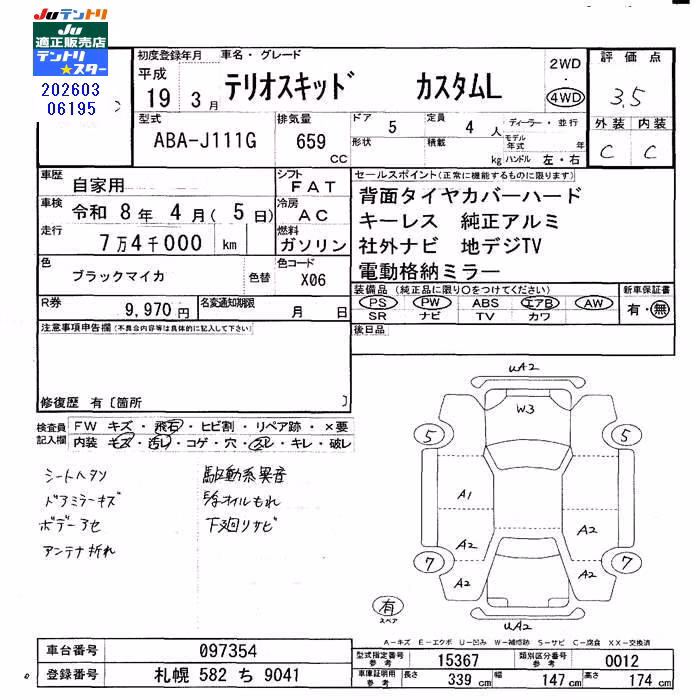 Juテントリ
Ju
適正販売店
テントリ
★スター
202603
06195
初度登録年月
平成
19年 3月
車名・グレード
テリオスキッド カスタムL
2WD
・
4WD
評価点
3.5
外装 内装
C C
型式
ABA-J111G
排気量
659
CC
ドア 5
形状
定員 4 人
積載 kg
ディーラー・並行
モデル年式 年
ハンドル 左・右
車歴 自家用
車検 令和 8年 4月( 5日)
走行 7万4千000 km
色 ブラックマイカ 色替
シフト FAT
冷房 AC
燃料 ガソリン
色コード X06
R券 9,970円
名変通知期限 月 日
セールスポイント(正常に機能するものに限ります)
背面タイヤカバーハード
キーレス 純正アルミ
社外ナビ 地デジTV
電動格納ミラー
装備品(純正品に限り○をつけてください)
PS PW ABS エアB AW
SR ナビ TV カワ
新車保証書
有・無
後日品
注意事項申告欄(不具合内容等は具体的に記入して下さい)
修復歴 有〔箇所 〕
検査員記入欄
FW キズ・飛石・ヒビ割・リペア跡・×要
内装 キズ・汚レ・コゲ・穴・スレ・キレ・破レ
シートヘタリ
ドアミラーキズ
ボデーアセ
アンテナ折れ
駆動系異音
E/gオイルもれ
下廻りサビ
UA2
W3
5
5
A1
A2
A2
7
7
A2
A2
有
スペア
UA2
A-キズ E-エクボ U-凹み W-補修跡 S-サビ C-腐食 XX-交換済
車台番号 097354
登録番号 札幌 582 ち 9041
型式指定番号 参考 15367
類別区分番号 参考 0012
車庫証明用 参考 長さ 339 cm 幅 147 cm 高さ 174 cm